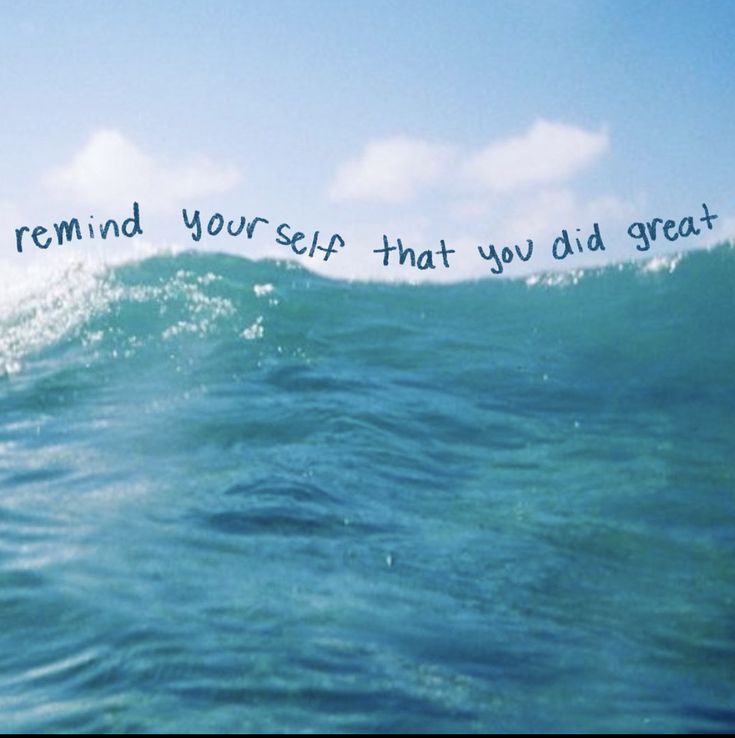 remind your self that you did great